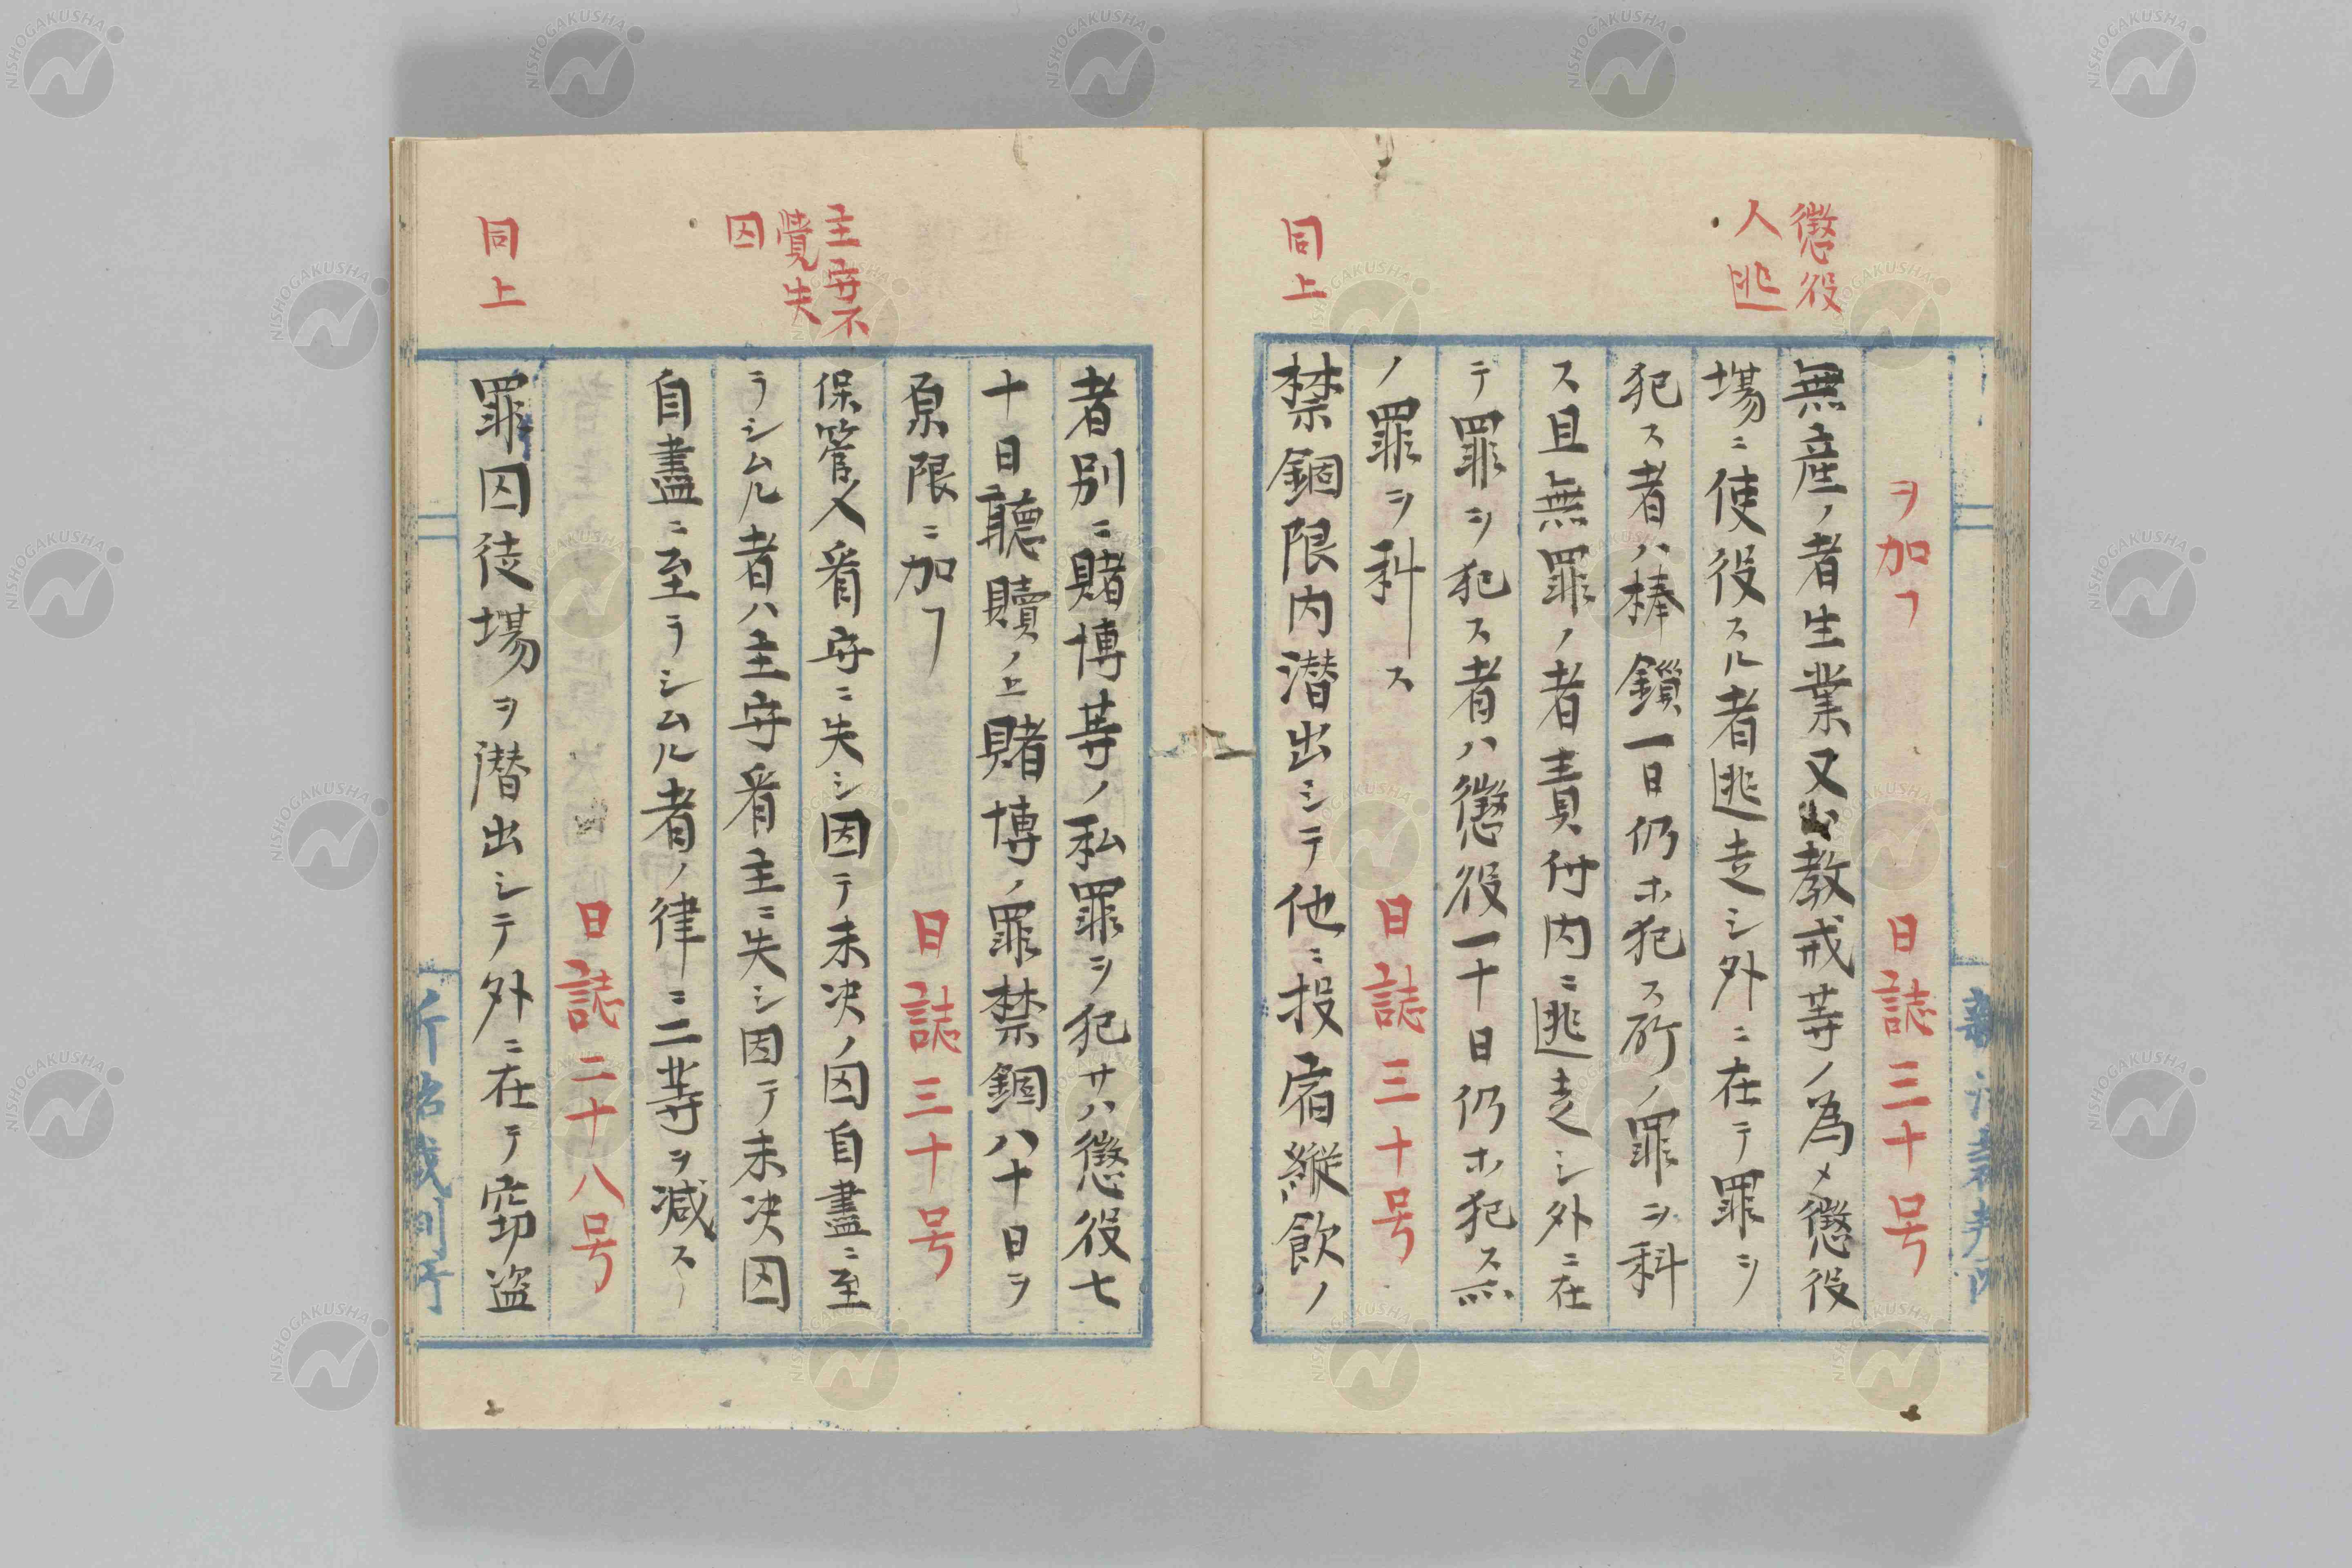 懲役
人逃
ヲ加フ 日誌三十号
無産ノ者生業又ハ教戒等ノ為メ懲役
場ニ使役スル者逃走シ外ニ在テ罪ヲ
犯ス者ハ棒鎖一日仍ホ犯ス所ノ罪ヲ科
ス且無罪ノ者責付内ニ逃走シ外ニ在
テ罪ヲ犯ス者ハ懲役一十日仍ホ犯ス所
ノ罪ヲ科ス 日誌三十号
同上
禁錮限内潜出シテ他ニ投宿縦飲ノ
者別ニ賭博等ノ私罪ヲ犯サハ懲役七
十日聴贖ノ上賭博ノ罪禁錮八十日ヲ
原限ニ加フ 日誌三十号
主守不
覺失
囚
保管人看守ニ失シ因テ未决ノ囚自盡ニ至
ラシムル者ハ主守看主ニ失シ因テ未决囚
自盡ニ至ラシムル者ノ律ニ二等ヲ减ス
日誌二十八号
同上
罪囚徒場ヲ潜出シテ外ニ在テ窃盗
NISHOGAKUSHA